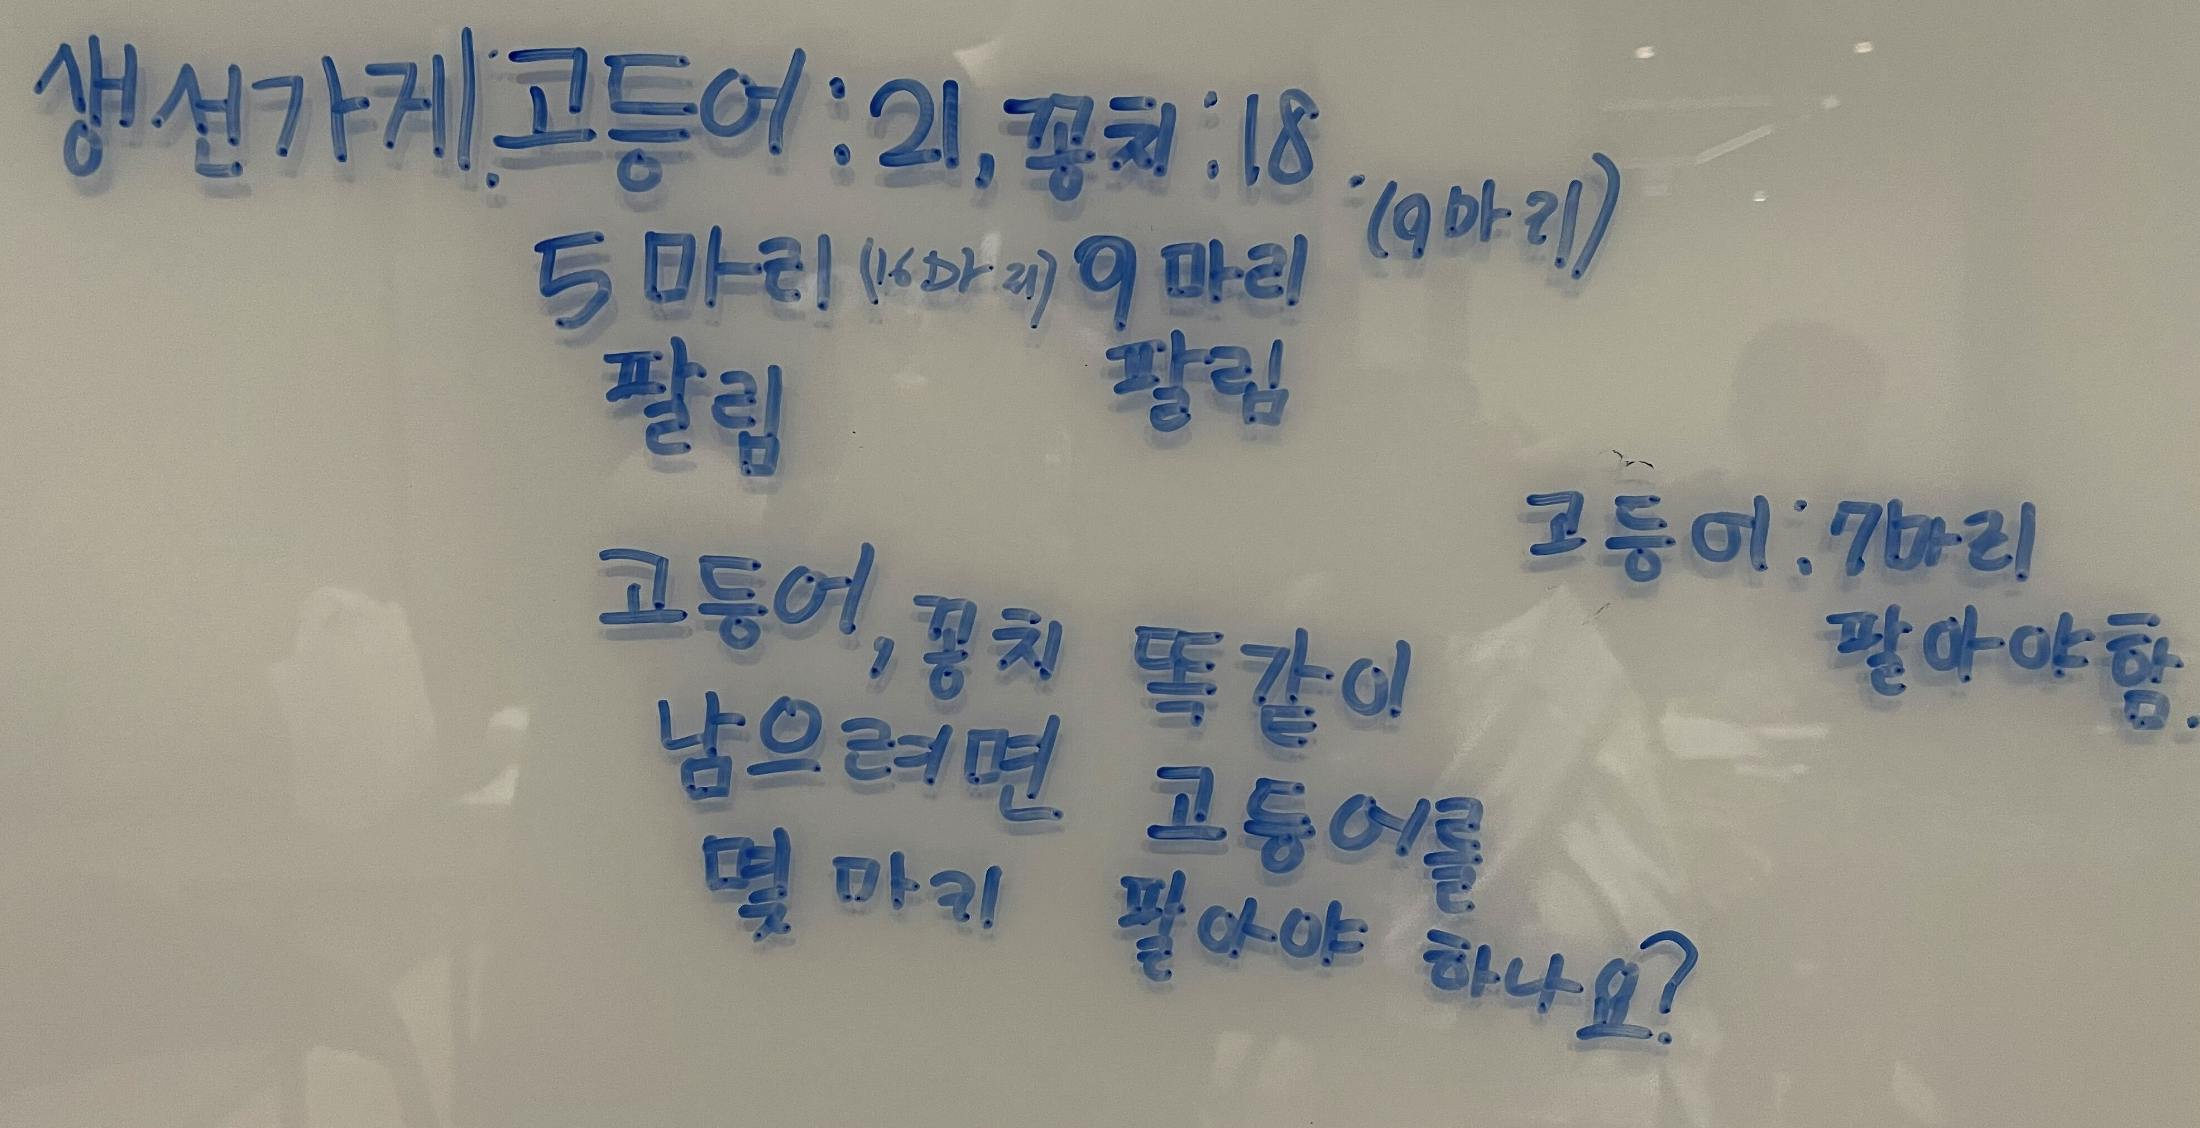 생선가게: 고등어:21, 꽁치:18.
5마리 (16마리) 9마리 (9마리)
팔림 팔림
고등어, 꽁치 똑같이
남으려면 고등어를
몇 마리 팔아야 하나요?
고등어:7마리
팔아야함.